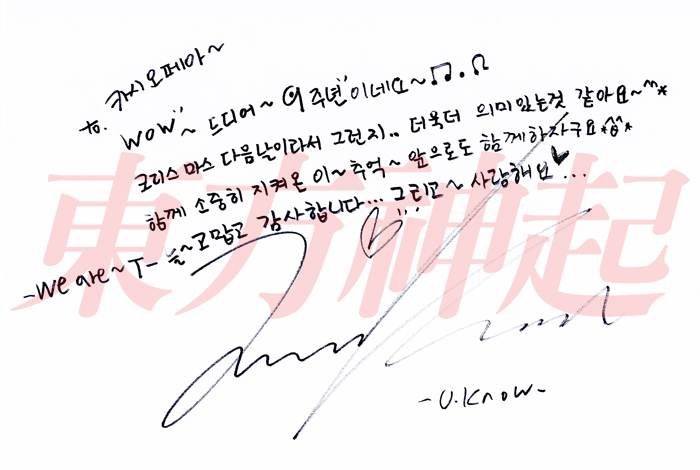 to. 카시오페아~
wow"~ 드디어~ 9주년"이네요~♫.♫
크리스마스 다음날이라서 그런지.. 더욱더 의미있는것 같아요~^^*
함께 소중히 지켜온 이~추억~ 앞으로도 함께하자구요*^ô^*
늘~고맙고 감사합니다... 그리고~ 사랑해요♥...
-We are~ T-
東方神起
-U.Know-